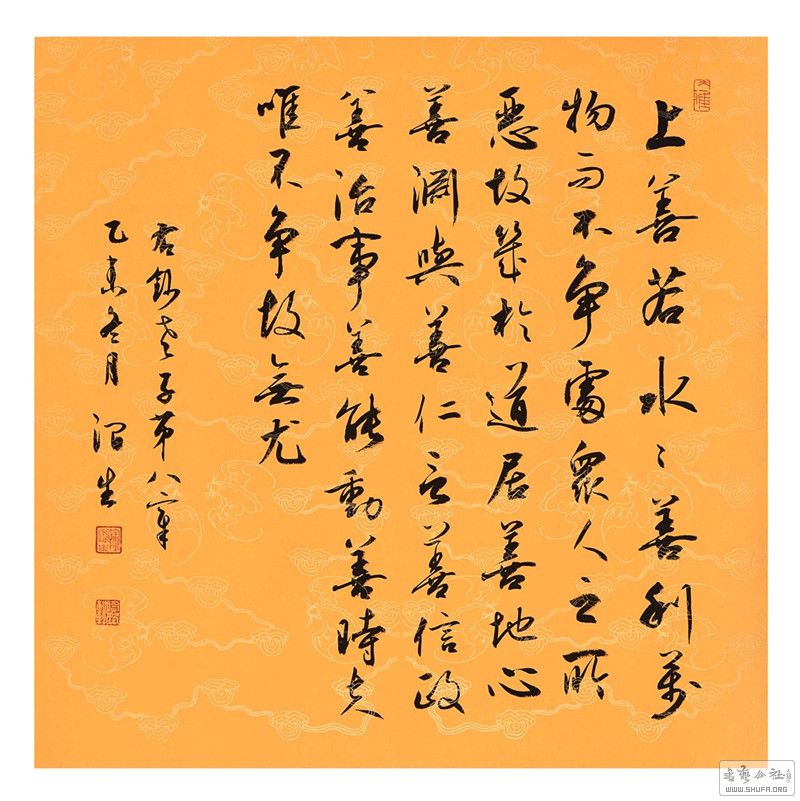 上善若水〻善利萬
物而不爭處衆人之所
惡故幾於道居善地心
善淵與善仁言善信政
善治事善能動善時夫
唯不爭故無尤
錄老子第八章
乙 冬月 生
書藝公社
WWW.SHUFA.ORG